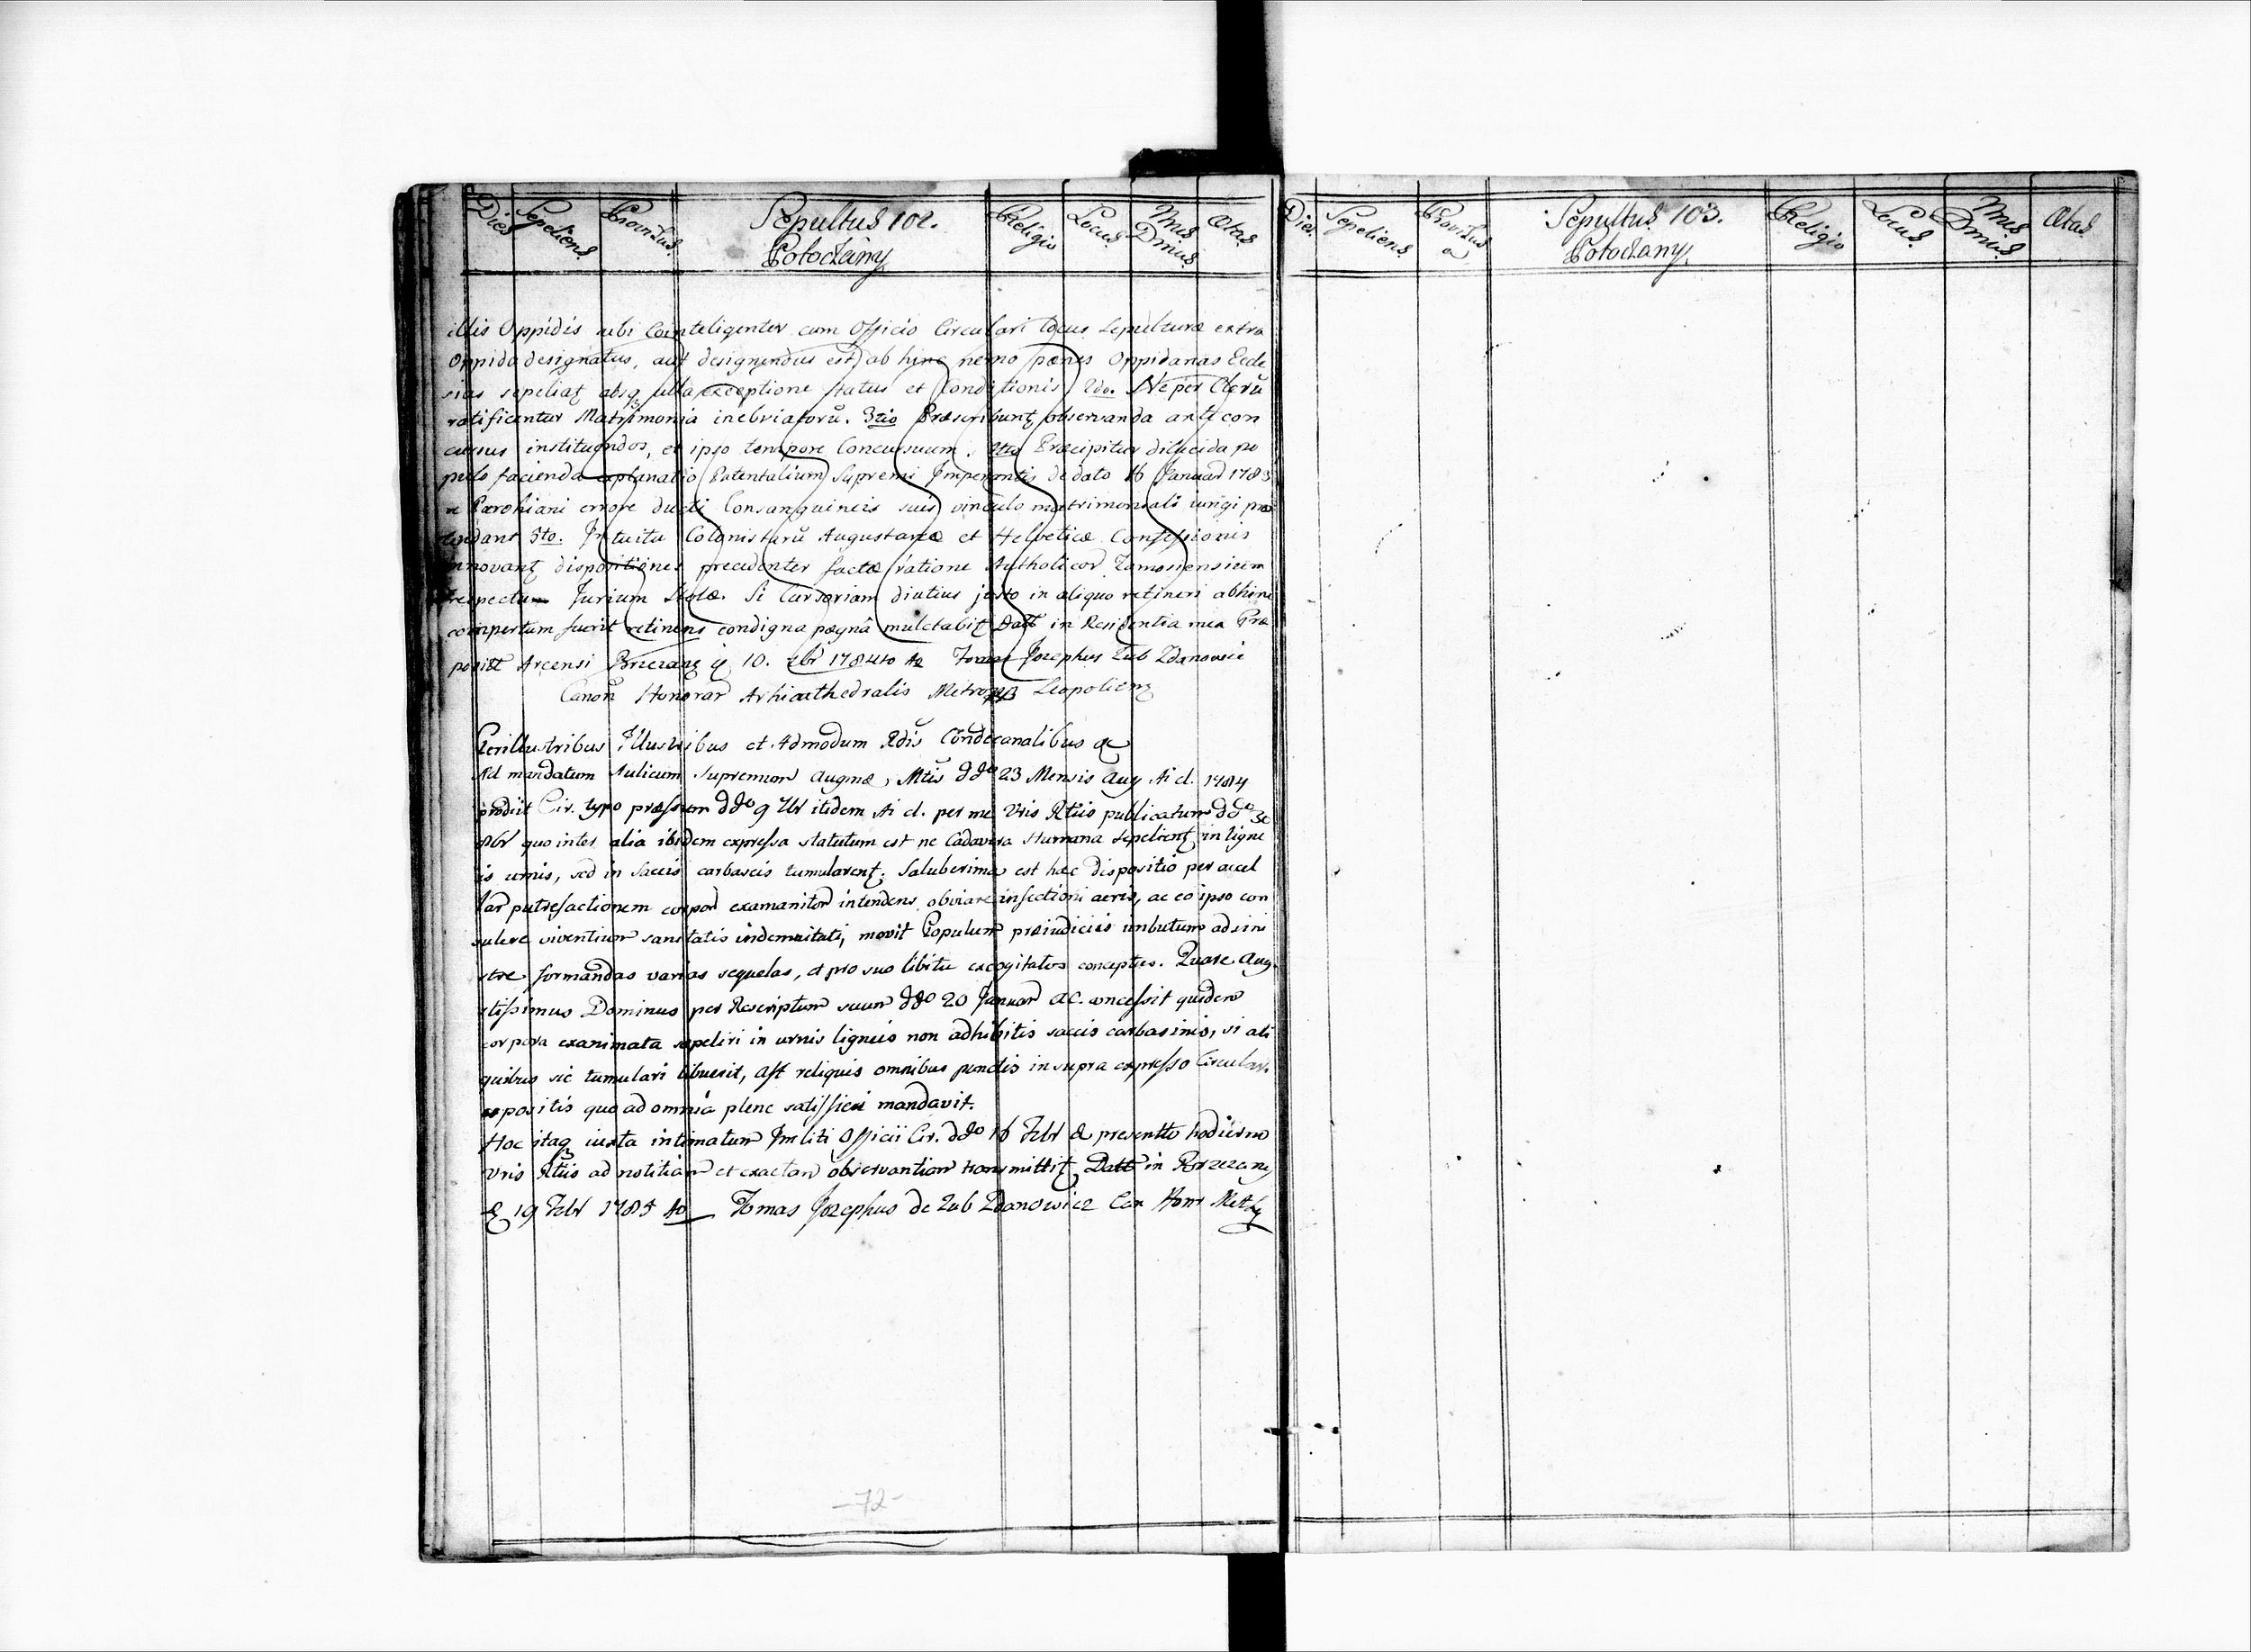 Dies Sepeliens Provisus Sepultus 102. Potoczany Religio Locus Mus Dmus Ætas
illis Oppidis ubi Cointeligenter cum Officio Circulari locus Sepulturæ extra
Oppida designatus, aut designendus est, ab hinc nemo pænes Oppidanas Eccle
sias sepeliat absq ulla exceptione status et Conditionis 2do. Ne per Clerũ
ratificentur Matrimonia inebriatorũ. 3tio Præscribunt observanda ante con
cursus instituendos, et ipso tempore Concursuum. 4to Præcipitur dilucida po
pulo facienda explanatio Patentalium Supremi Imperantis de dato 16 Januar 1783
ne Parohiani errore ducti Consanguineis suis vinculo matrimoniali iungi præ
tendant 5to. Intuitu Colonistarũ Augustanæ et Helveticæ Confessionis
innovant dispositiones precedenter factæ ratione Acatholicor Zamosiensium
respectum Jurium Stolæ. Si Cursoriam diutius justo in aliquo retineri abhinc
compertum fuerit retinens condigna pœynâ mulctabit Datt in Residentia mea Præ
positt Arcensi Brzezany 10. 1784to Josephus Zub Zdanowic
Canon Honorar Arhicathedralis Leopolien
Perillustribus Illustribus et Admodum Rdis Condecanalibus
Ad mandatum Aulicum Supremum Mtis ddo 23 Mensis Aug Ai cl. 1784
prodiit Cir. typo præssum ddo 9 7br itidem Ai cl. per me Vris Rtiis publicatum ddo 30
quo inter alia ibidem expressa statutum est ne Cadavera Humana sepelient in ligne
is urnis, sed in saccis carbaseis tumularent. Saluberima est hæc dispositio per accel
lar putrefactionem corpor examanitor intendens obviare infectioni aeris, ac eo ipso con
sulere viventium sanitatis indemnitati, movit Populum præiudiciis imbutum ad sini
stre formandas varias sequelas, et pro suo libitu excogitatos conceptus. Quare Aug
stissimus Dominus per Rescriptum suum ddo 20 Januar a.c. concessit quidem
corpora exanimata sepeliri in urnis ligneis non adhibitis saccis carbasinis, si ali
quibus sic tumulari libuerit, ast reliquis omnibus punctis in supra expresso Circulari
expositis quo ad omnia plene satisfieri mandavit.
Hoc itaq iuxta intimatum Officii Cir. ddo 16 Febr presentto hodierno
Vris Rtiis ad notitiam et exactam observantiam transmittit Datt in Brzezany
19 Febr 1785 Tomas Jozephus de Zub Zdanowicz Can Honr
-72-
Dies Sepeliens Provisus a Sepultus 103. Potoczany Religio Locus Mus Dmus Ætas